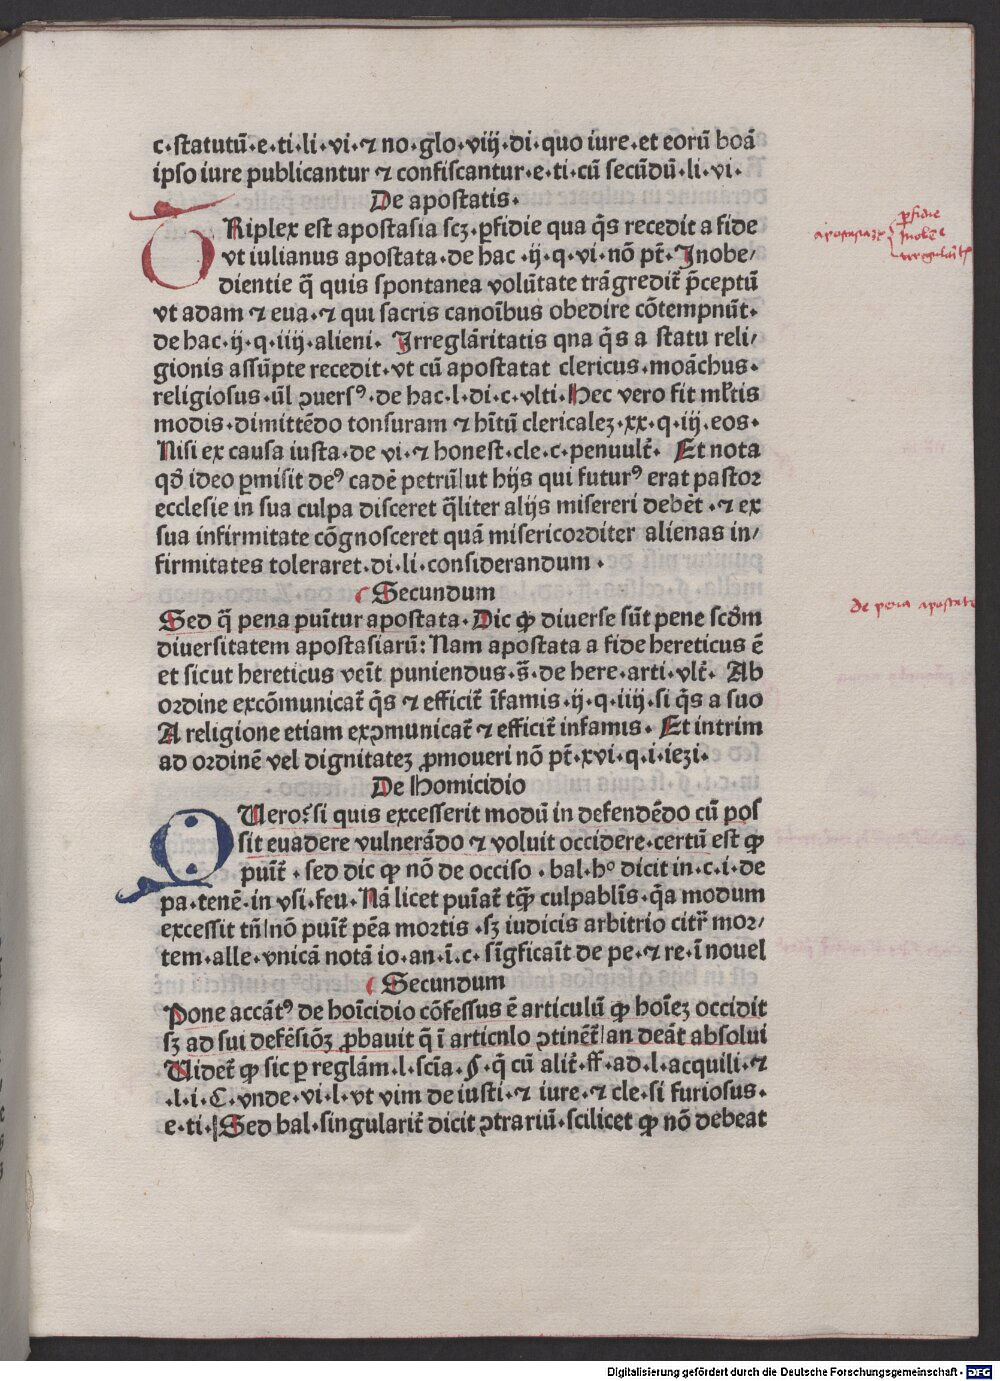 c·statutū·e·ti·li·vi·⁊ no·glo·viij·di·quo iure·et eorū boā
ipso iure publicantur ⁊ confiscantur·e·ti·cū secūdū·li·vi·
De apostatis·
TRiplex est apostasia scꝫ·ꝑfidie qua q̄s recedit a fide
vt iulianus apostata·de hac·ij·q·vi·nō pt̄· Inobe/
dientie q̄ quis spontanea volūtate trāgredit̄ p̄ceptū
vt adam ⁊ eua·⁊ qui sacris canoībus obedire cōtempnūt·
de hac·ij·q·iiij·alieni· Irreglāritatis qna q̄s a statu reli/
gionis assūpte recedit·vt cū apostatat clericus·moāchus·
religiosus·ūl ɔuersꝰ·de hac·l·di·c·vlti·Hec vero fit ml̄tis
modis·dimittēdo tonsuram ⁊ hītū clericaleꝫ·xx·q·iij·eos·
Nisi ex causa iusta·de vi·⁊ honest·cle·c·penuult̄· Et nota
qd̄ ideo ꝑmisit deꝰ cadē petrū|ut hijs qui futurꝰ erat pastor
ecclesie in sua culpa disceret q̄liter alijs misereri debēt·⁊ ex
sua infirmitate cōgnosceret quā misericorditer alienas in/
firmitates toleraret·di·li·considerandum·
Secundum
Sed q̄ pena puītur apostata·Dic ꝙ diuerse sūt pene scd̄m
diuersitatem apostasiarū: Nam apostata a fide hereticus ē
et sicut hereticus veīt puniendus·s̄·de here·arti·vlt̄· Ab
ordine excōmunicat̄ q̄s ⁊ efficit̄ īfamis·ij·q·iiij·si q̄s a suo
A religione etiam exɔmunicat̄ ⁊ efficit̄ infamis· Et intrim
ad ordinē vel dignitateꝫ ꝓmoueri nō pt̄·xvi·q·i·iezi·
De Homicidio
QUero·si quis excesserit modū in defendēdo cū pos
sit euadere vulnerādo ⁊ voluit occidere·certū est ꝙ
puīt̄·sed dic ꝙ nō de occiso·bal·hᵒ dicit in·c·i·de
pa·tenē·in vsi·feu·Nā licet puīat̄ tq̄ꝫ culpabl̄is·q̄a modum
excessit tn̄|nō puīt̄ pēa mortis·sꝫ iudicis arbitrio citr̄ mor/
tem·alle·vnicā notā io·an·ī·c·sīgficaīt de pe·⁊ re·ī nouel
Secundum
Pone accātꝰ de hoīcidio cōfessus ē articulū ꝙ hoīeꝫ occidit
sꝫ ad sui defēsiōꝫ ꝓbauit q̄ ī articnlo ɔtinēt̄|an deāt absolui
Uidet̄ ꝙ sic ꝑ reglām·l·scīa·§·q̄ cū alit̄·ff·ad·l·acquili·⁊
·l·i·C·vnde·vi·l·vt vim de iusti·⁊ iure·⁊ cle·si furiosus·
e·ti·|Sed bal·singularit̄ dicit ɔtrariū·scilicet ꝙ nō debeat
ꝑfidie
Inobe
irregularit
De pena apostate
Digitalisierung gefördert durch die Deutsche Forschungsgemeinschaft · DFG